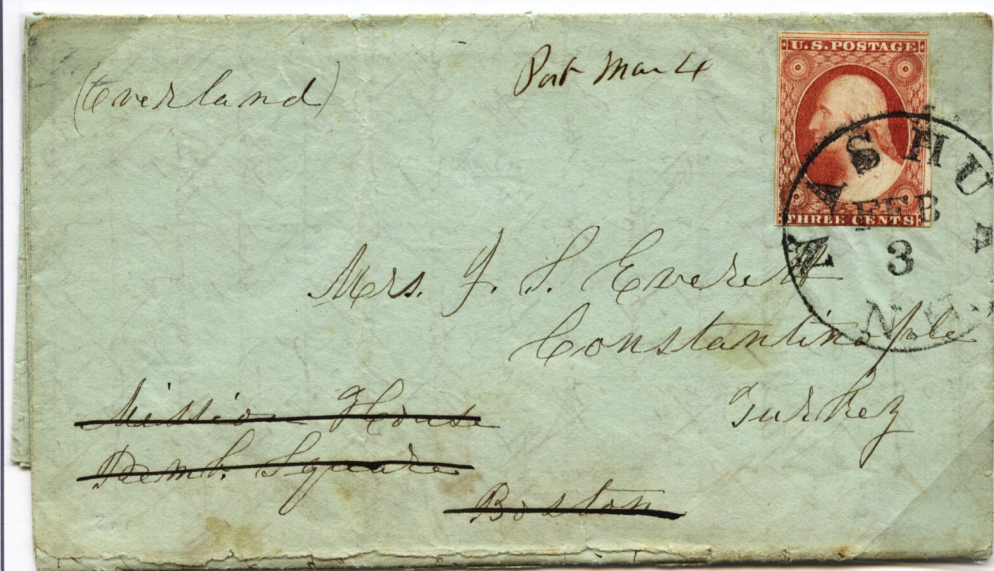 (Overland)
Post Mar 4
U.S. POSTAGE
THREE CENTS
NASHUA
FEB
3
N.H.
Mrs. J. S. Everett
Constantinople
Turkey
Mission House
Pemb. Square
Boston